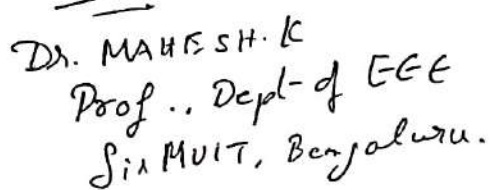 Dr. MAHESH. K
Prof.., Dept of EEE
Sir MVIT, Bengaluru.